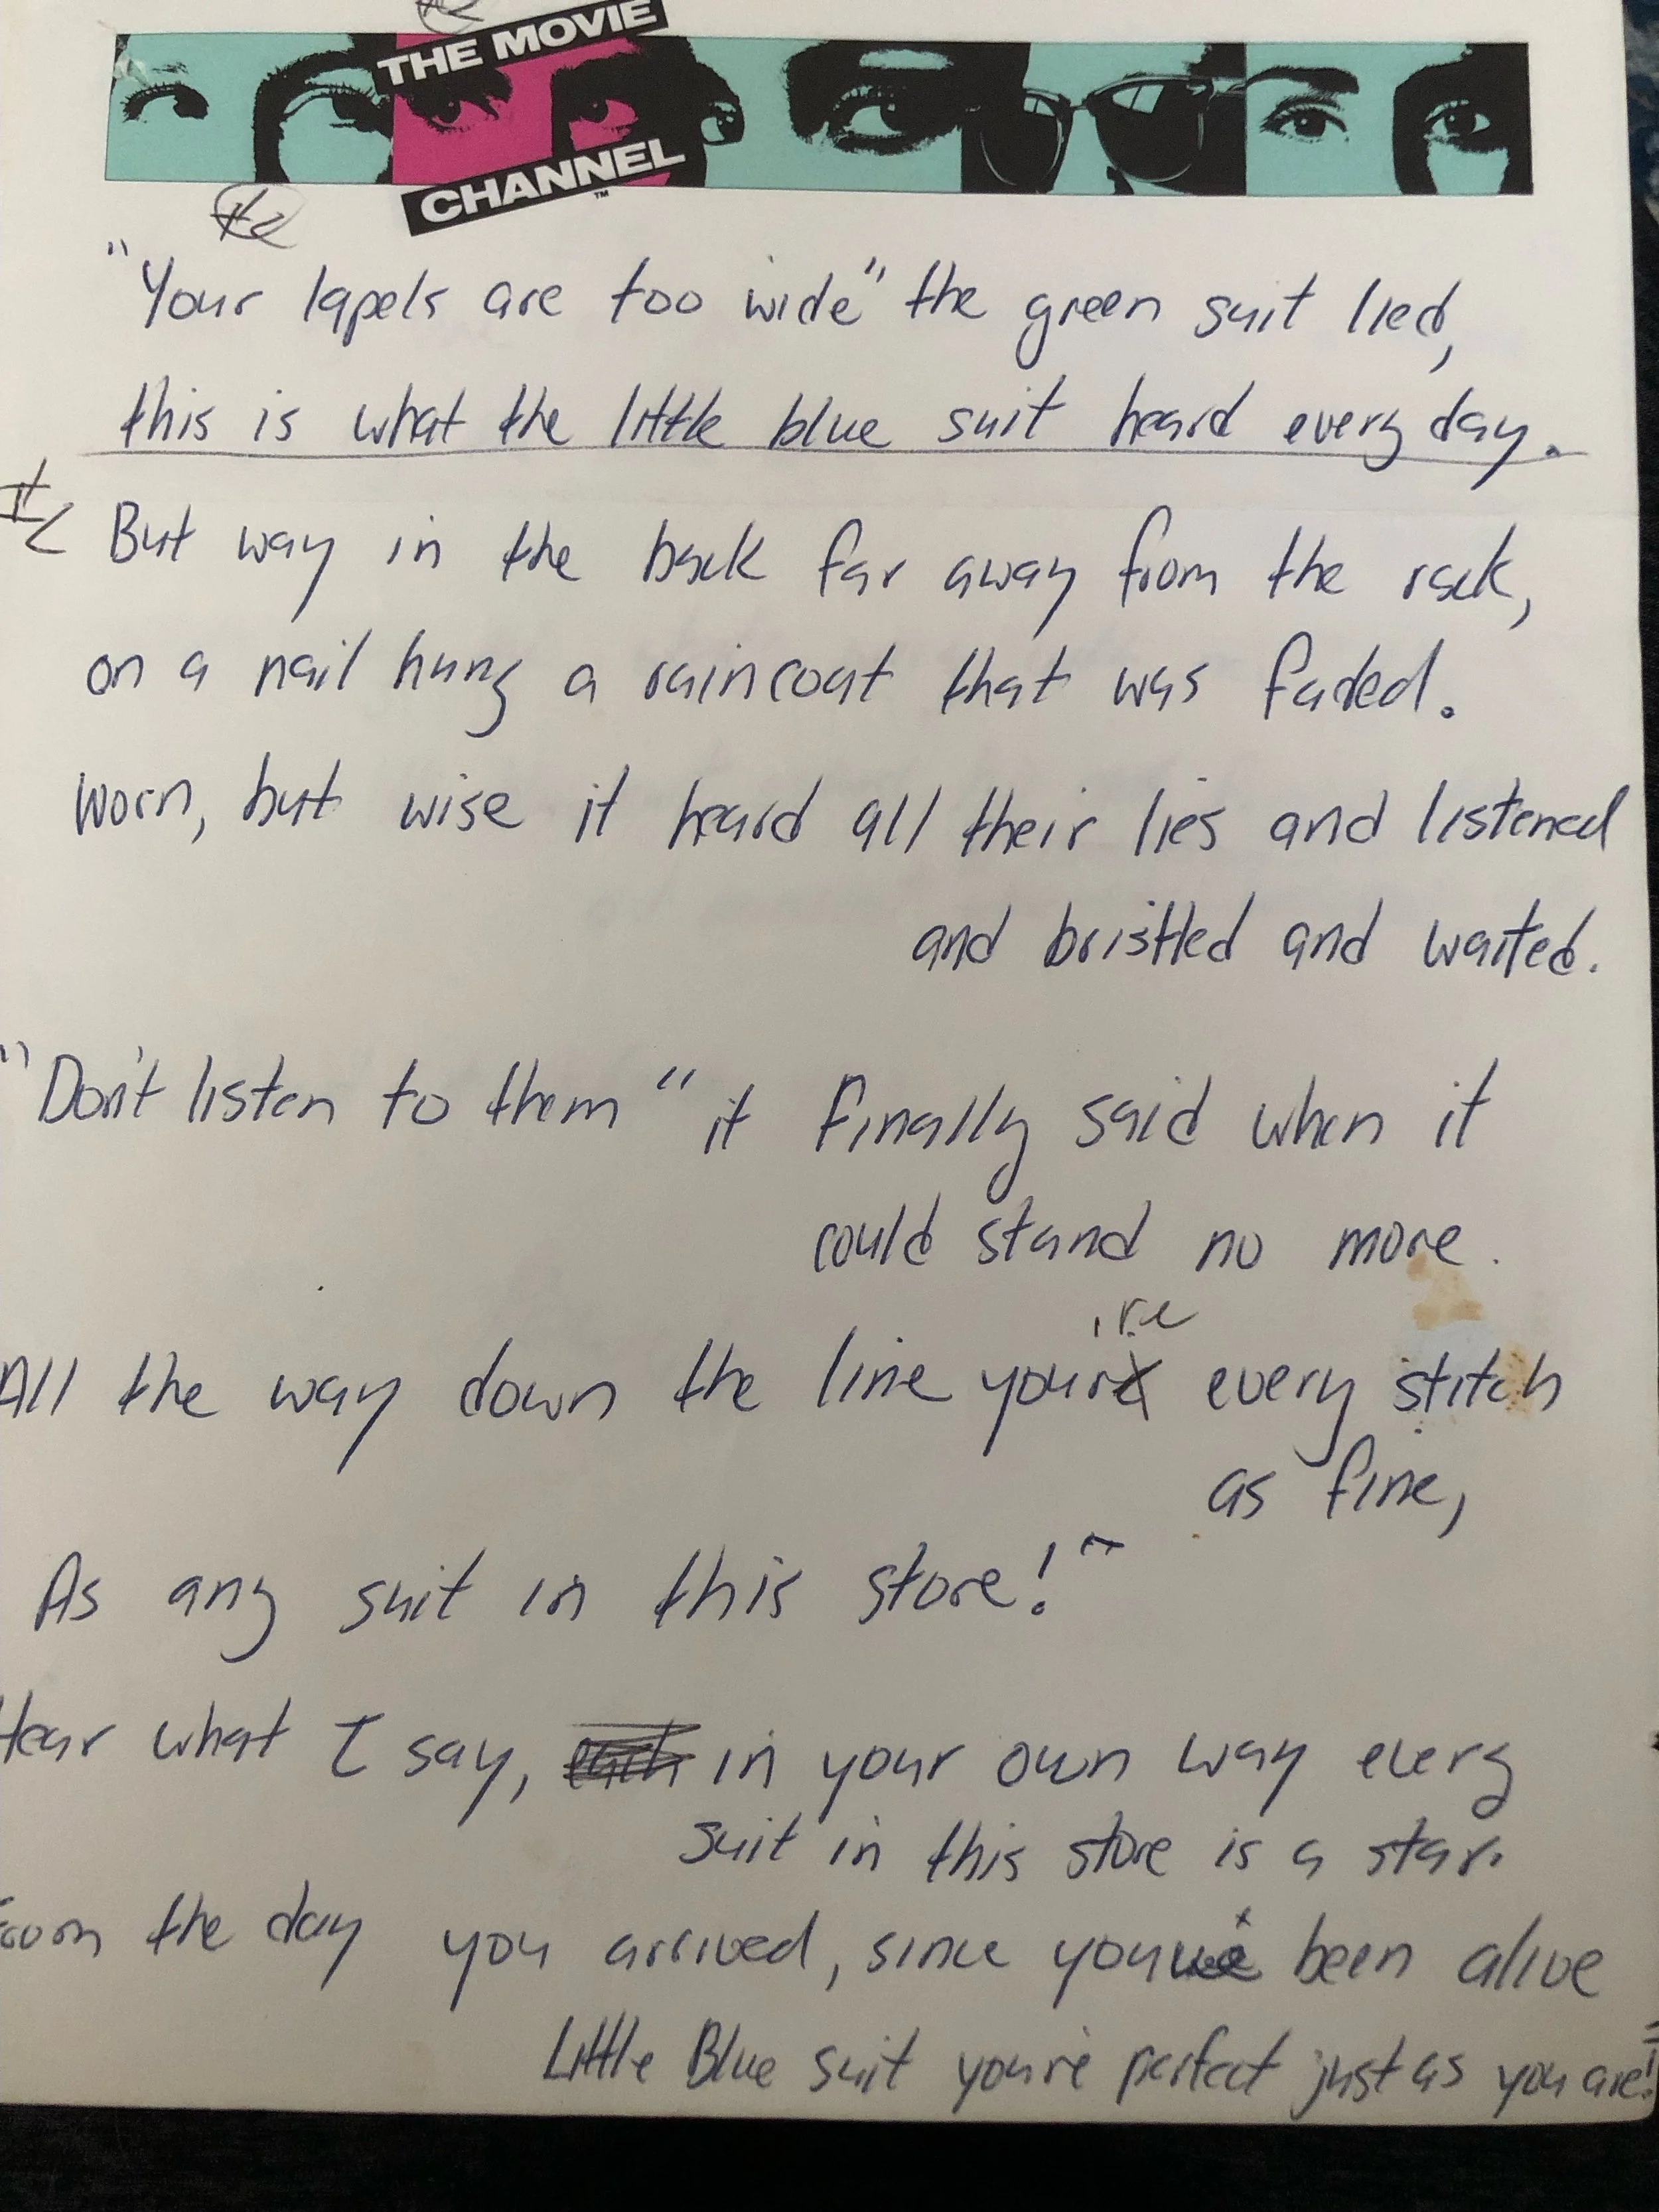 THE MOVIE
CHANNEL
TM
"Your lapels are too wide" the green suit lied,
this is what the little blue suit heard every day.
But way in the back far away from the rack,
on a nail hung a raincoat that was faded.
Worn, but wise it heard all their lies and listened
and bristled and waited.
"Don't listen to them" it finally said when it
could stand no more.
All the way down the line you're every stitch
as fine,
As any suit in this store!"
Hear what I say, in your own way every
suit in this store is a star.
From the day you arrived, since you've been alive
Little Blue suit you're perfect just as you are!"